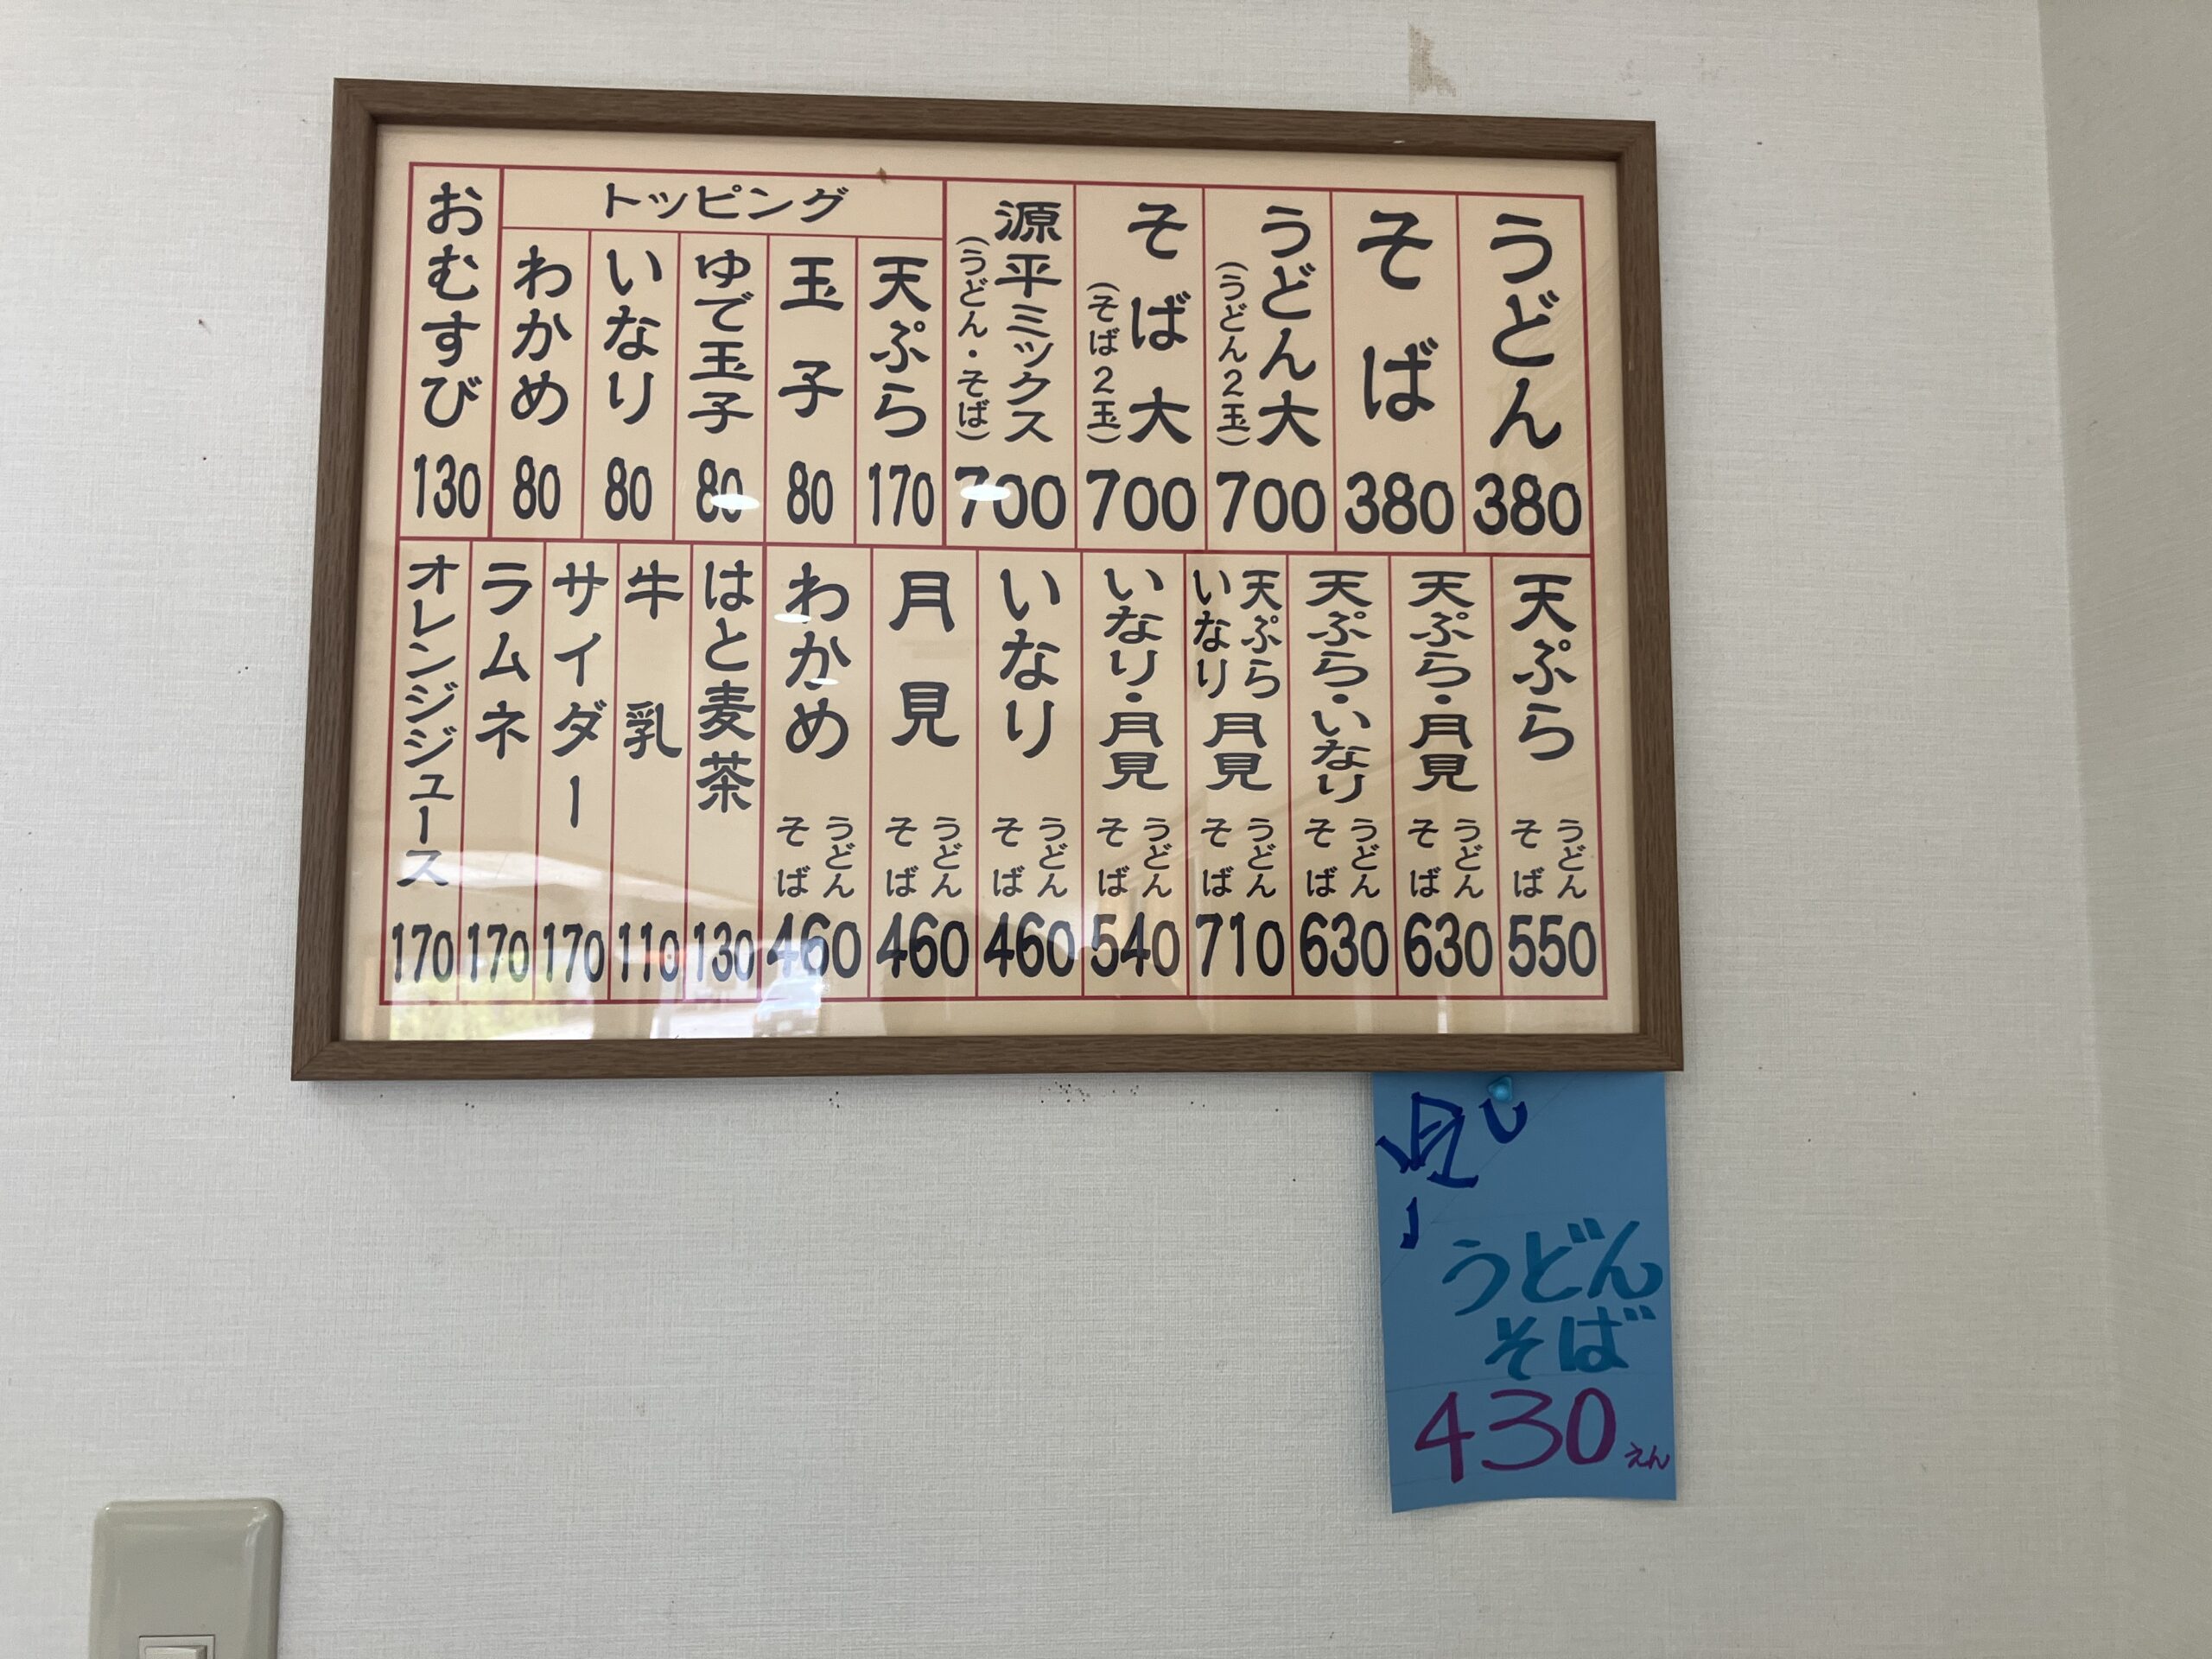 うどん 380
そば 380
うどん大 (うどん2玉) 700
そば大 (そば2玉) 700
源平ミックス (うどん・そば) 700
トッピング
天ぷら 170
玉子 80
ゆで玉子 80
いなり 80
わかめ 80
おむすび 130
天ぷら うどん そば 550
天ぷら・月見 うどん そば 630
天ぷら・いなり うどん そば 630
天ぷら いなり 月見 うどん そば 710
いなり・月見 うどん そば 540
いなり うどん そば 460
月見 うどん そば 460
わかめ うどん そば 460
はと麦茶 130
牛乳 110
サイダー 170
ラムネ 170
オレンジジュース 170
うどん
そば
430えん